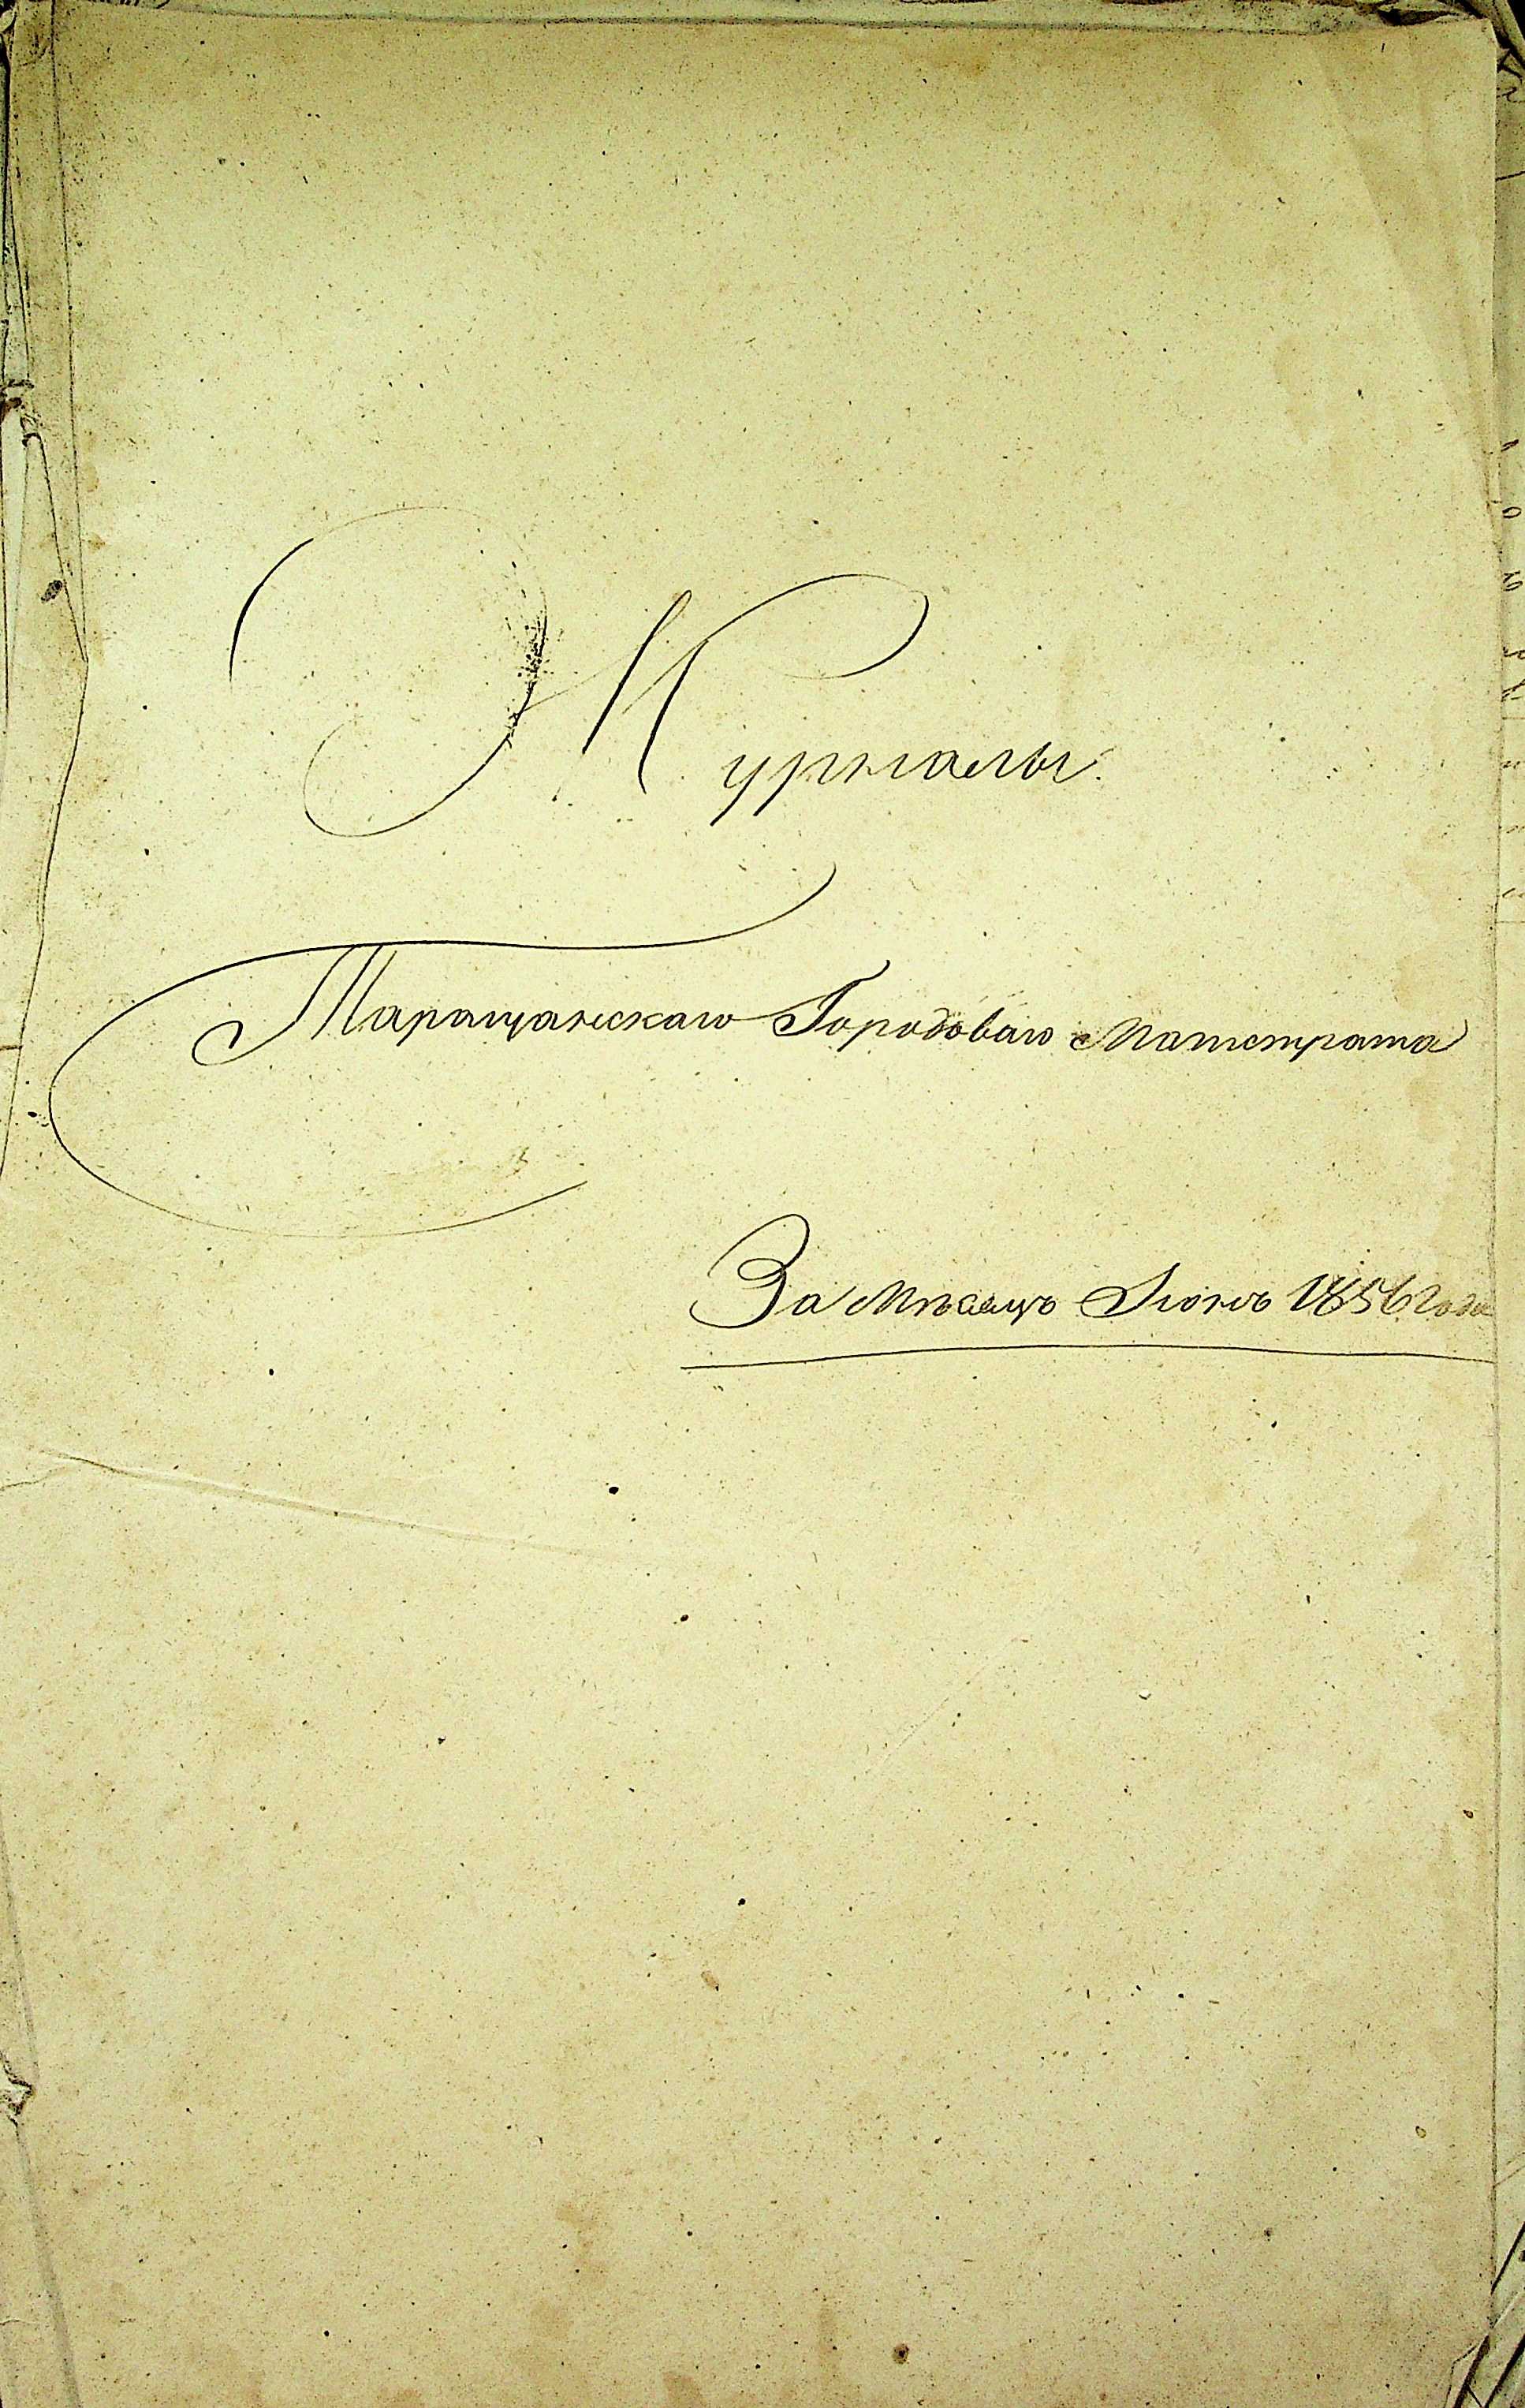 Журналы
Таращанскаго Городоваго Магистрата
За Мѣсяцъ Іюнь 1856 года